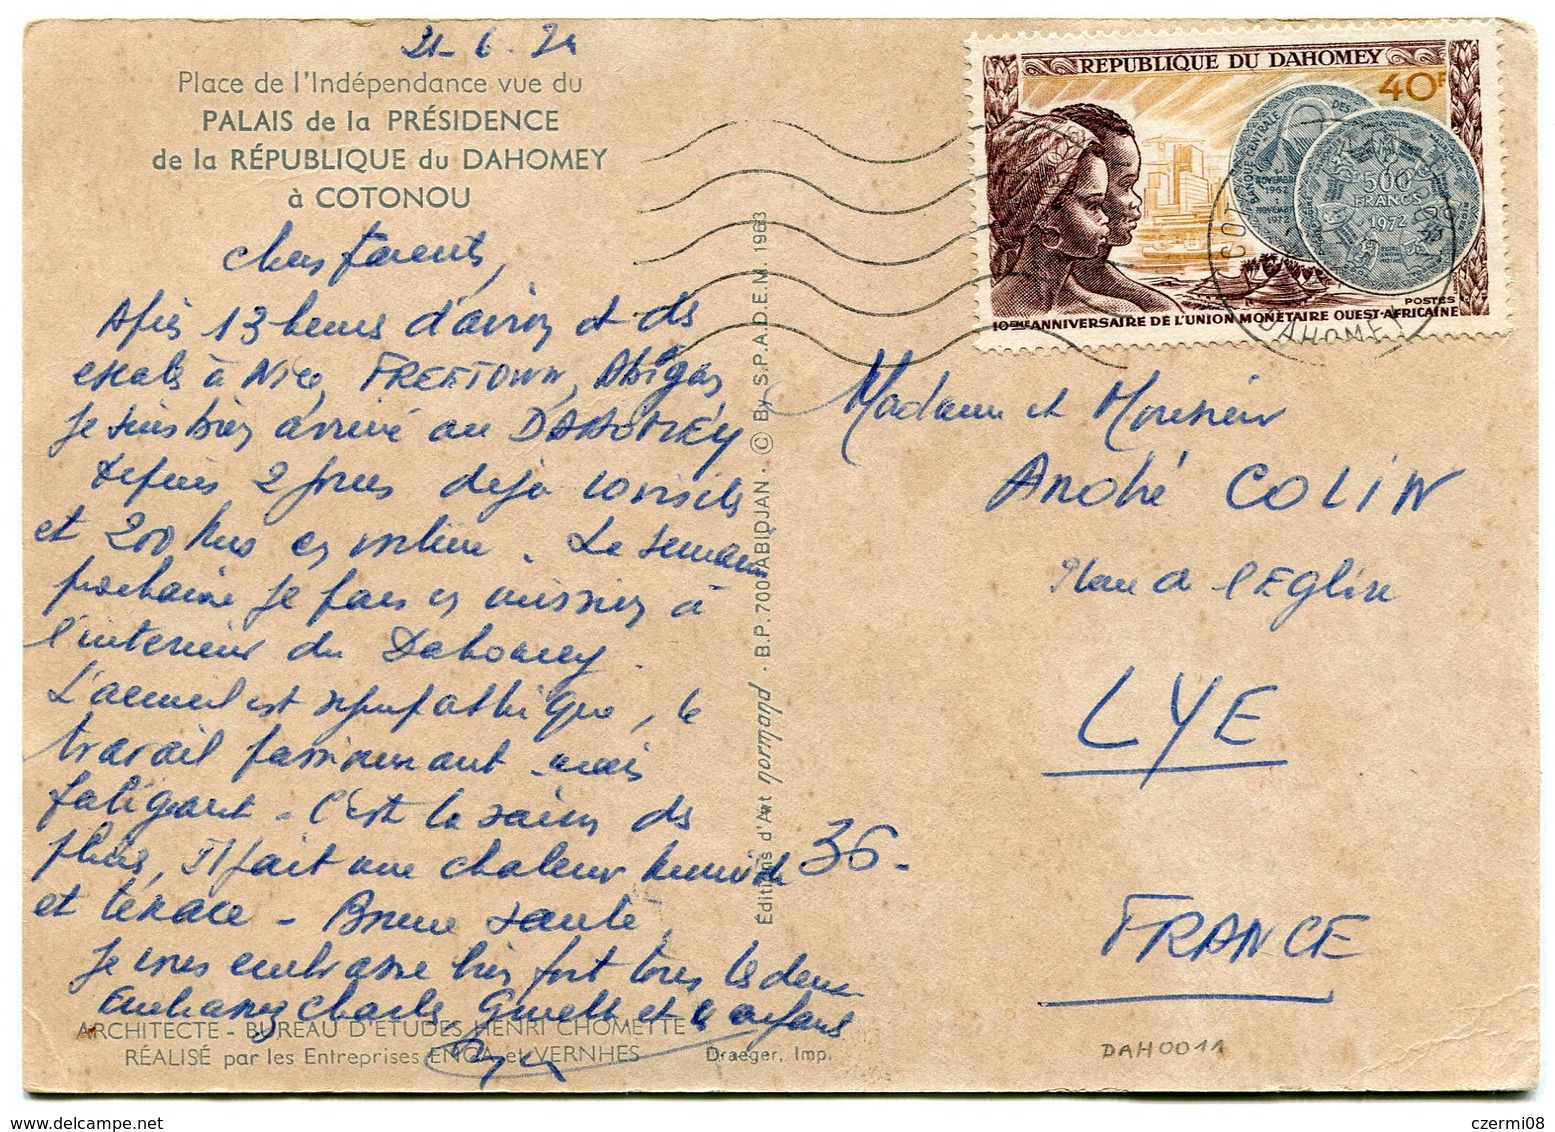 21-6-74
Place de l'Indépendance vue du
PALAIS de la PRÉSIDENCE
de la RÉPUBLIQUE du DAHOMEY
à COTONOU
Chers Parents,
Après 13 heures d'avion et ds
escale à Nice, FREETOWN, Abigan,
je suis bien arrivé au DAHOMEY
depuis 2 jours déjà 10 visites
et 200 kms en voiture. La semaine
prochaine je pars en mission à
l'intérieur du Dahomey.
L'accueil est sympathique, le
travail passionnant mais
fatigant - C'est la saison des
pluies, Il fait une chaleur humide
et tenace - Bonne santé,
Je vous embrasse bien fort tous les deux
Embrassez Charles, et les enfants
ARCHITECTE - BUREAU D'ÉTUDES HENRI CHOMETTE
RÉALISÉ par les Entreprises ENCA et VERNHES
Draeger, Imp.
Éditions d'Art normand - B.P. 700 ABIDJAN - © By S.P.A.D.E.M. 1963
RÉPUBLIQUE DU DAHOMEY
40F
BANQUE CENTRALE DES
NOVEMBRE
1962
NOVEMBRE
1972
500
FRANCS
1972
POSTES
10EME ANNIVERSAIRE DE L'UNION MONÉTAIRE OUEST-AFRICAINE
DAHOMEY
Madame et Monsieur
André COLIN
Place de l'Eglise
LYE
36-
FRANCE
DAH0011
czermi08